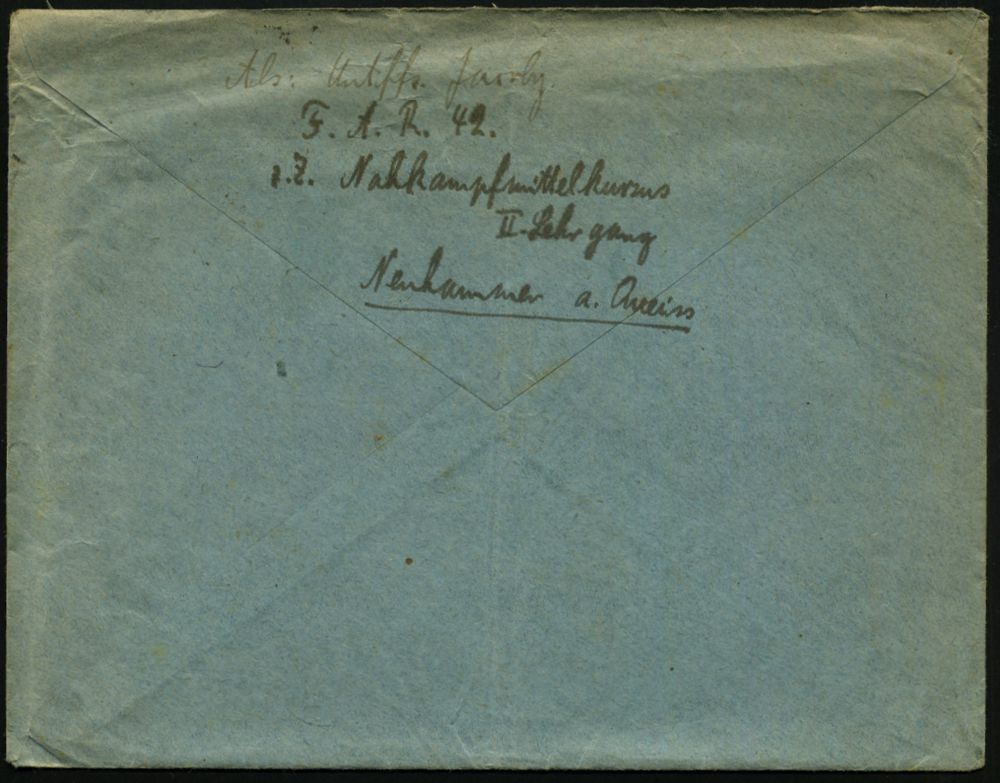 Abs: Untffz. Jacoby.
F. A. R. 42.
z.Z. Nahkampfmittelkursus
II. Lehrgang
Neuhammer a. Queiss